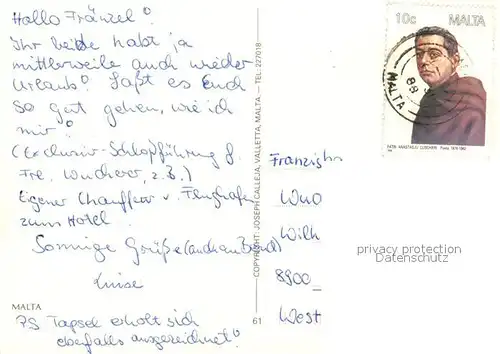 Hallo Fränzel!
Ihr beide habt ja
mittlerweile auch wieder
Urlaub! Laßt es Euch
so gut gehen, wie ich
mir!
(Exclusiv-Schloßführung f.
Fre. Wucherer, z.B.)
Eigener Chauffeur v. Flughafen
zum Hotel.
Sonnige Grüße (auch an Bernd)
Luise
MALTA
PS Tapsel erholt sich
ebenfalls ausgezeichnet!
COPYRIGHT: JOSEPH CALLEJA, VALLETTA, MALTA. — TEL: 227018
61
10c MALTA
MALTA
88
Wilh
8900
West
privacy protection
Datenschutz